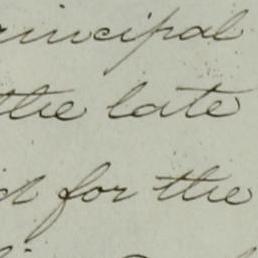 rincipal
the late
d for the